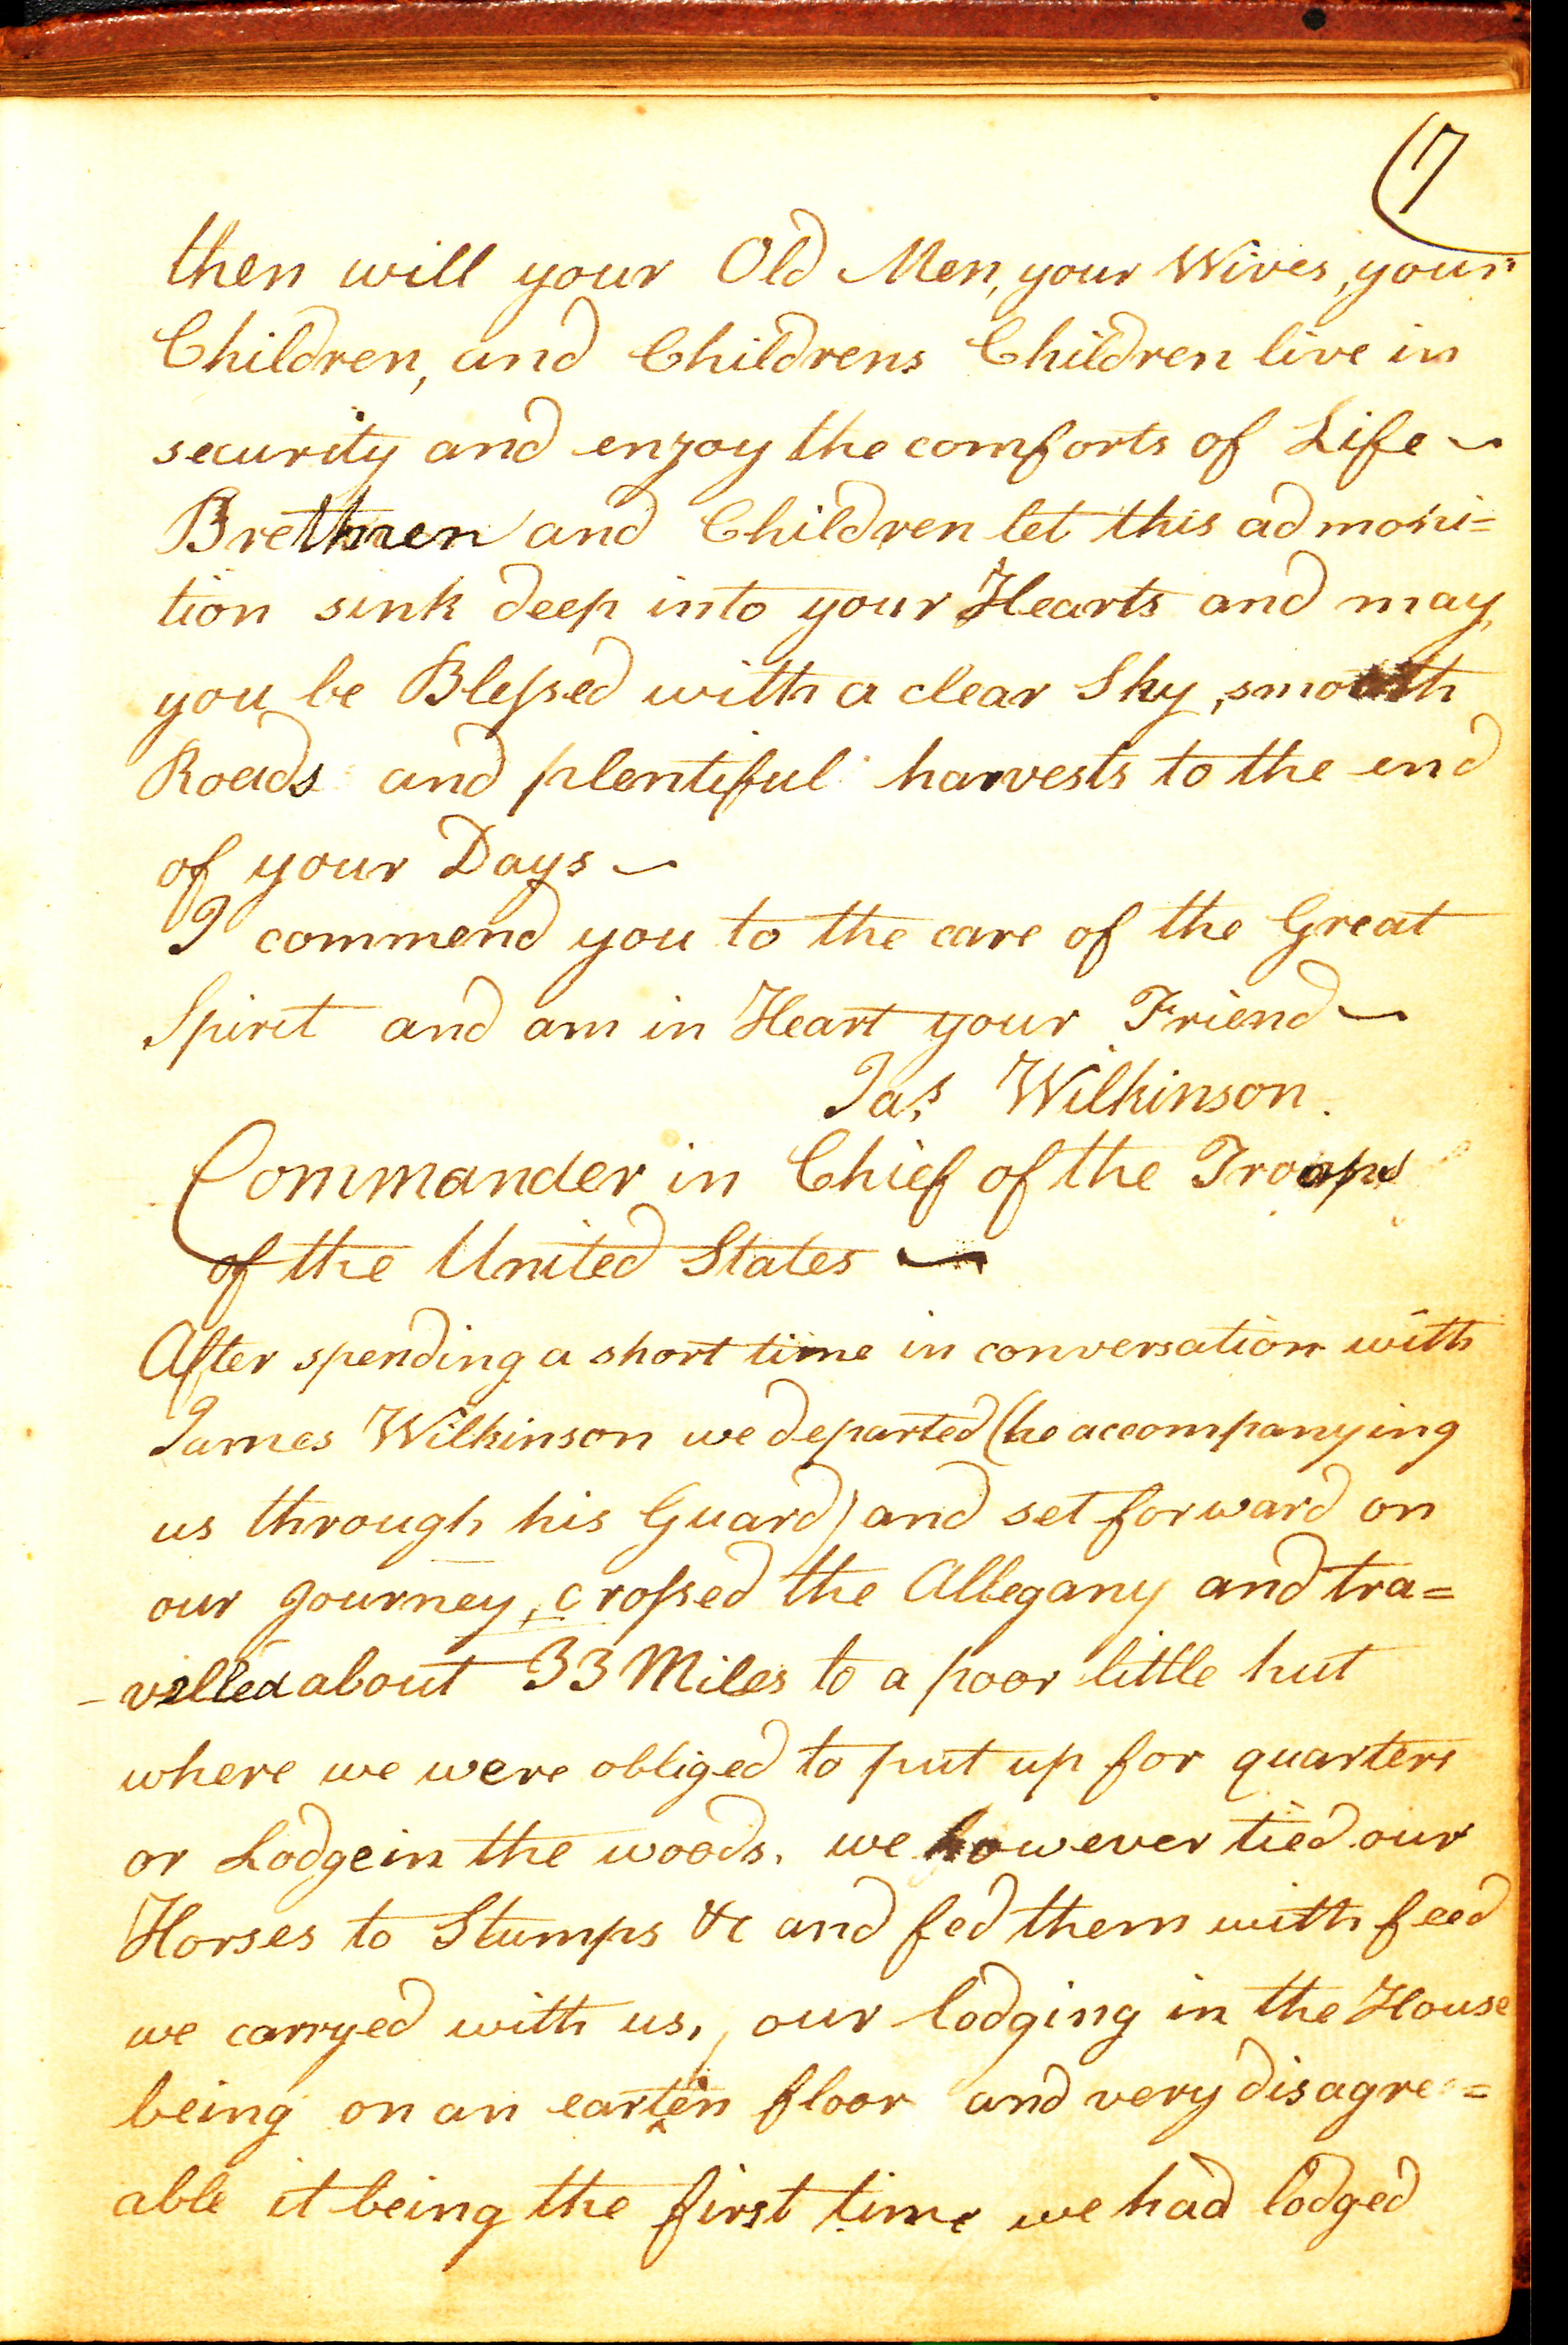 17
then will your Old Men, your Wives, your
Children, and Childrens Children live in
security and enjoy the comforts of Life ~
Brethren and Children let this admoni=
tion sink deep into your Hearts and may
you be Blessed with a clear Sky, smooth
Roads and plentiful harvests to the end
of your Days ~
I commend you to the care of the Great
Spirit and am in Heart your Friend ~
Jas. Wilkinson.
Commander in Chief of the Troops
of the United States ~
After spending a short time in conversation with
James Wilkinson we departed (he accompanying
us through his Guard) and set forward on
our Journey, crossed the Allegany and tra=
-velled about 33 Miles to a poor little hut
where we were obliged to put up for quarters
or Lodge in the woods. we however tied our
Horses to Stumps &c and fed them with feed
we carryed with us, our lodging in the House
being on an earten floor and very disagree=
able it being the first time we had lodged